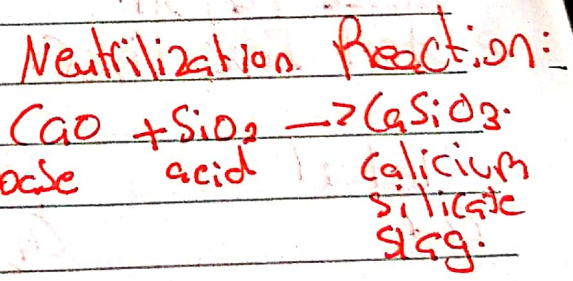 Neutrilization Reaction:
CaO + SiO₂ → CaSiO₃.
base acid calicium
silicate
slag.